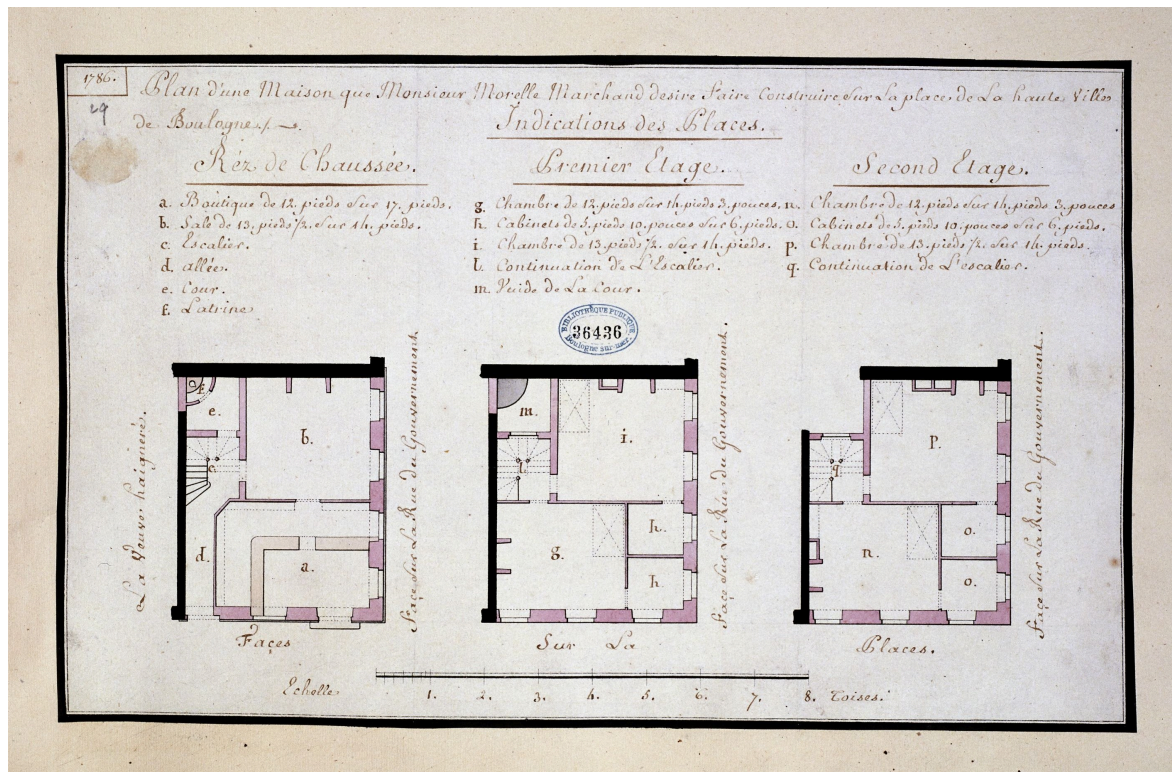 1786.
29
Plan d'une Maison que Monsieur Morelle Marchand desire Faire Construire Sur La place de La haute Ville
de Boulogne
Indications des Places.
Réz de Chaussée.
a. Boutique de 12. pieds Sur 17. pieds.
b. Sale de 13. pieds 1/2. Sur 14. pieds.
c. Escalier.
d. allée.
e. Cour.
f. Latrine
Premier Etage.
g. Chambre de 12. pieds Sur 14. pieds 3. pouces.
h. Cabinets de 5. pieds 10. pouces Sur 6. pieds.
i. Chambre de 13. pieds 1/2. Sur 14. pieds.
l. Continuation de L'Escalier.
m. Vuide de La Cour.
Second Etage.
n. Chambre de 12. pieds Sur 14. pieds 3. pouces
o. Cabinets de 5. pieds 10. pouces Sur 6. pieds.
p. Chambre de 13. pieds 1/2. Sur 14. pieds.
q. Continuation de L'escalier.
BIBLIOTHÈQUE PUBLIQUE
36436
Boulogne-sur-mer
La Veuve haigneré.
f.
e.
b.
c.
d.
a.
Face Sur La Rue du Gouvernement.
m.
i.
l.
g.
h.
h.
Face Sur La Rue du Gouvernement.
p.
q.
n.
o.
o.
Face Sur La Rue du Gouvernement.
Façes Sur La Places.
Echelle 1. 2. 3. 4. 5. 6. 7. 8. Toises.